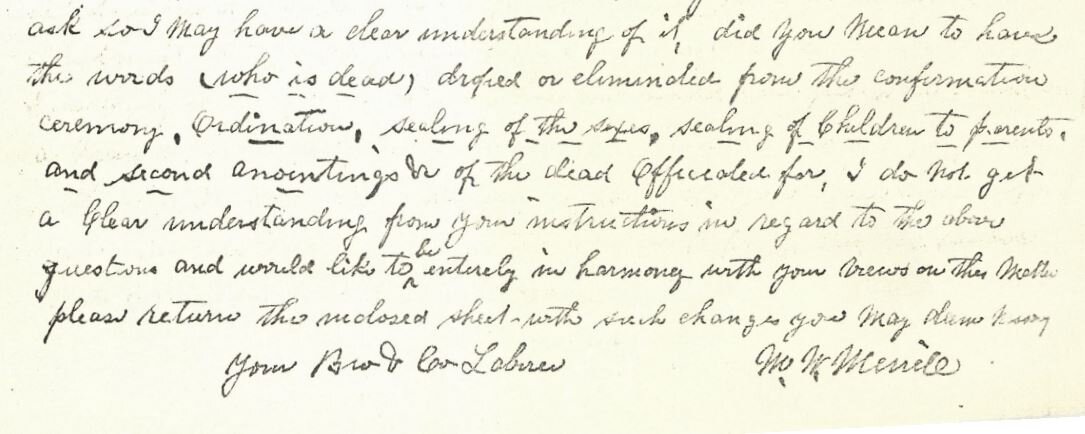 ask so I may have a clear understanding of it, did you mean to have
the words (who is dead) droped or eliminated from the confirmation
ceremony, Ordination, sealing of the sexes, sealing of Children to parents,
and second anointings &c of the dead Officiated for, I do not get
a Clear understanding from your instructions in regard to the above
questions and would like to be entirely in harmony with your views on this Matter
please return the inclosed sheet with such changes you may deem
Your Bro & Co Laborer M W Merrill